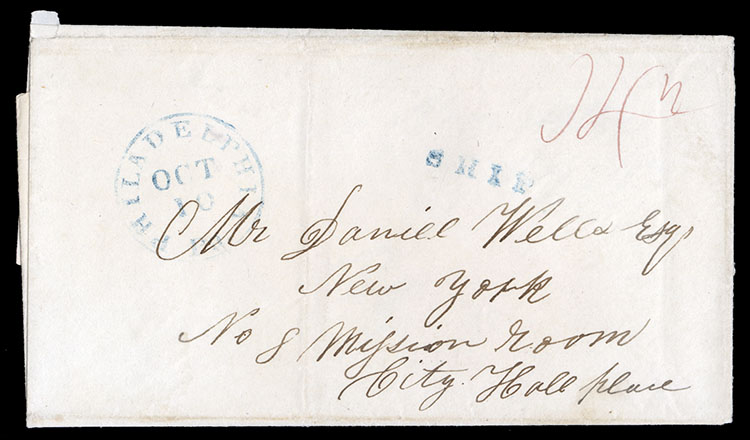 14½
PHILADELPHIA Pa
OCT
10
SHIP
Mr Daniell Wells Esqr
New York
No 8 Mission Room
City Hall place